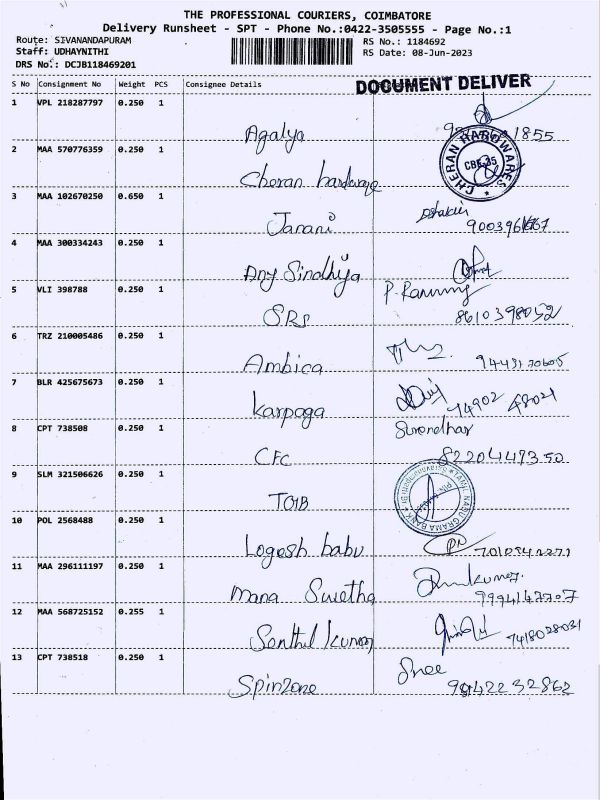 THE PROFESSIONAL COURIERS, COIMBATORE
Delivery Runsheet - SPT - Phone No.:0422-3505555 - Page No.:1
Route: SIVANANDAPURAM
RS No.: 1184692
Staff: UDHAYNITHI
RS Date: 08-Jun-2023
DRS No.: DCJB118469201
S No Consignment No Weight PCS Consignee Details
DOCUMENT DELIVER
1 VPL 218287797 0.250 1
Agalya
1855
2 MAA 570776359 0.250 1
CHERAN HARDWARES
CBE-35
Cheran hardware
3 MAA 102670250 0.650 1
Janani
4 MAA 300334243 0.250 1
Any Sindhija
5 VLI 398788 0.250 1
SRS
8610398052
6 TRZ 210005486 0.250 1
Ambica
7 BLR 425675673 0.250 1
Karpaga
74902 48021
8 CPT 738508 0.250 1
Surendhar
CFC
8220447350
9 SLM 321506626 0.250 1
TAMIL NADU GRAMA BANK
TOIB
10 POL 2568488 0.250 1
Logesh babu
11 MAA 296111197 0.250 1
Mana Swetha
12 MAA 568725152 0.255 1
Senthil Kumar
7418028031
13 CPT 738518 0.250 1
Shee
Spinzone
9942232862